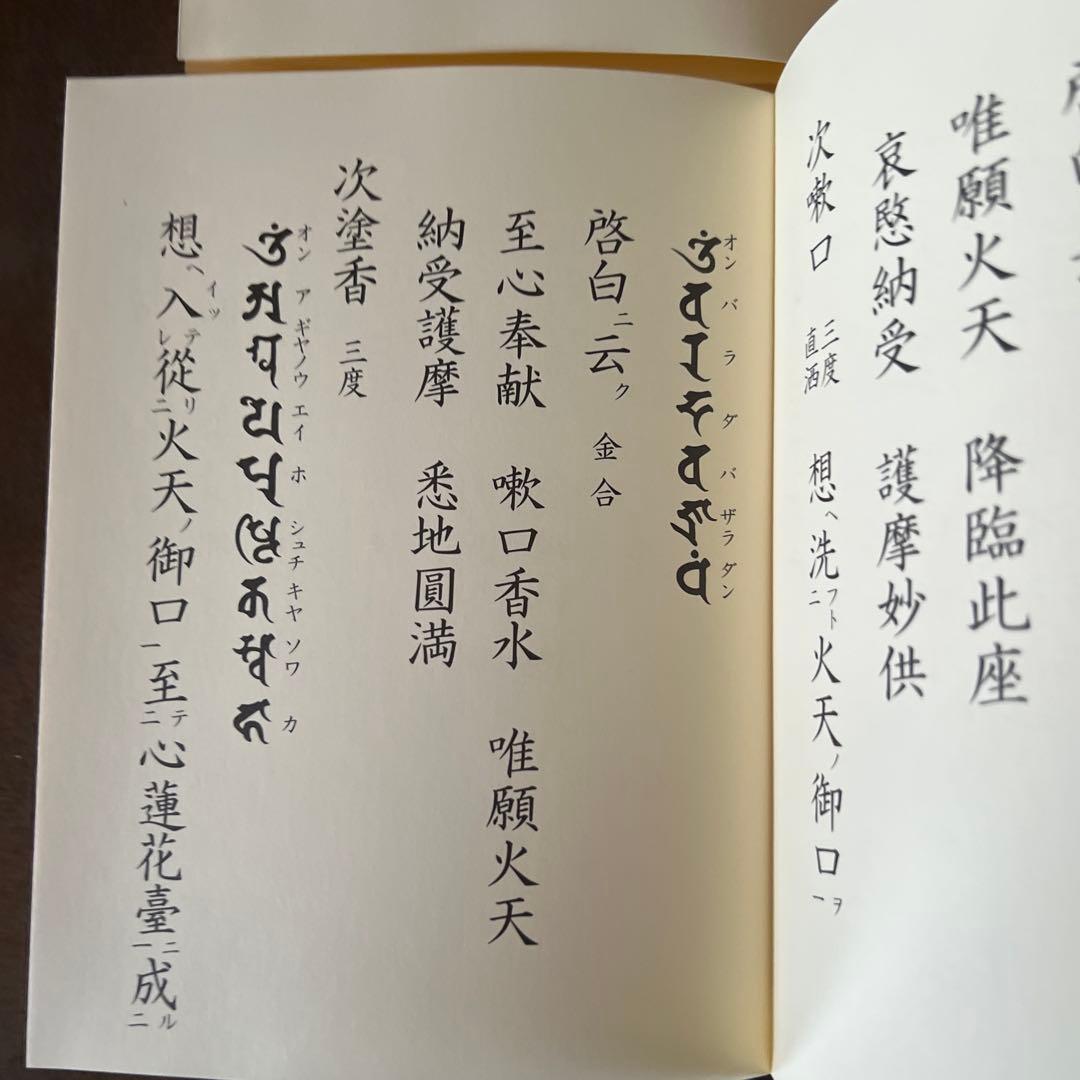 唯願火天　降臨此座
哀愍納受　護摩妙供
次嗽口　三度直洒　想ヘ洗フト二火天ノ御口一ヲ
オン バ ラ ダ バ ザラ ダン
啓白ニ云ク　金合
至心奉献　嗽口香水　唯願火天
納受護摩　悉地圓満
次塗香　三度
オン ア ギヤノウ エイ ホ シュチ キヤ ソワ カ
想ヘ入イツテレ從リ二火天ノ御口一至テ二心蓮花臺ニ一成ル二